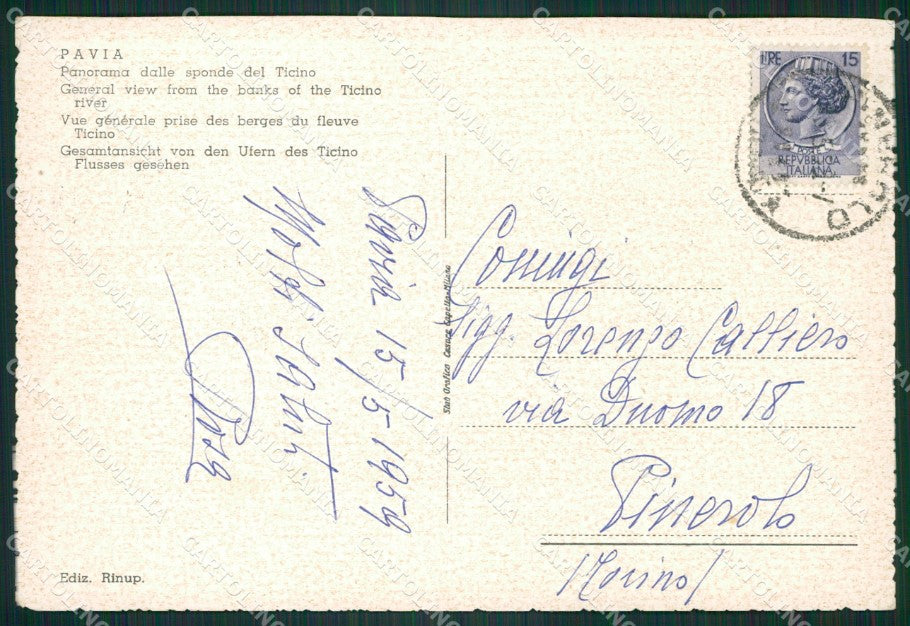 PAVIA
Panorama dalle sponde del Ticino
General view from the banks of the Ticino
river
Vue générale prise des berges du fleuve
Ticino
Gesamtansicht von den Ufern des Ticino
Flusses gesehen
LIRE 15
REPVBBLICA
ITALIANA
Pavia 15/5 1959
Molti Saluti
Rosa
Coniugi
Sigg. Lorenzo Calliero
via Duomo 18
Pinerolo
(Torino)
Ediz. Rinup.
CARTOLINOMANIA